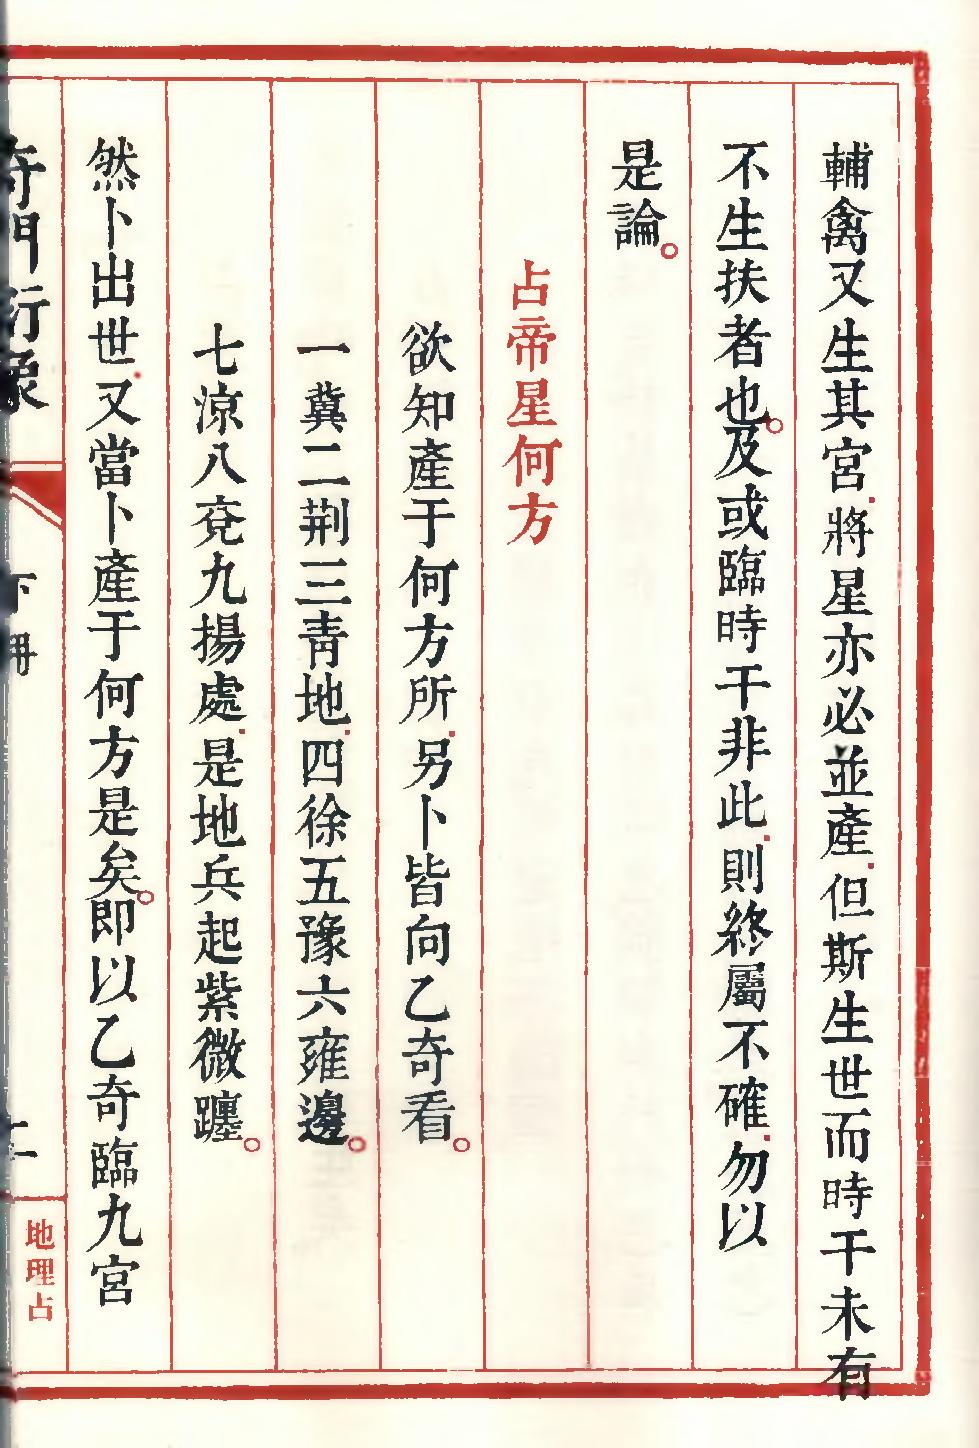 輔禽又生其宮.將星亦必並產.但斯生世而時干未有
不生扶者也。及或臨時干非此.則終屬不確.勿以
是論。
占帝星何方
欲知產于何方所.另卜皆向乙奇看。
一冀二荆三靑地.四徐五豫六雍邊。
七涼八兗九揚處.是地兵起紫微躔。
然卜出世.又當卜產于何方是矣。即以乙奇臨九宮
奇門衍象
下冊
地理占